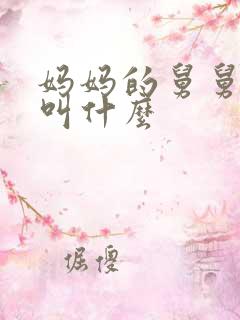 妈妈的舅舅
叫什麼
倔傻